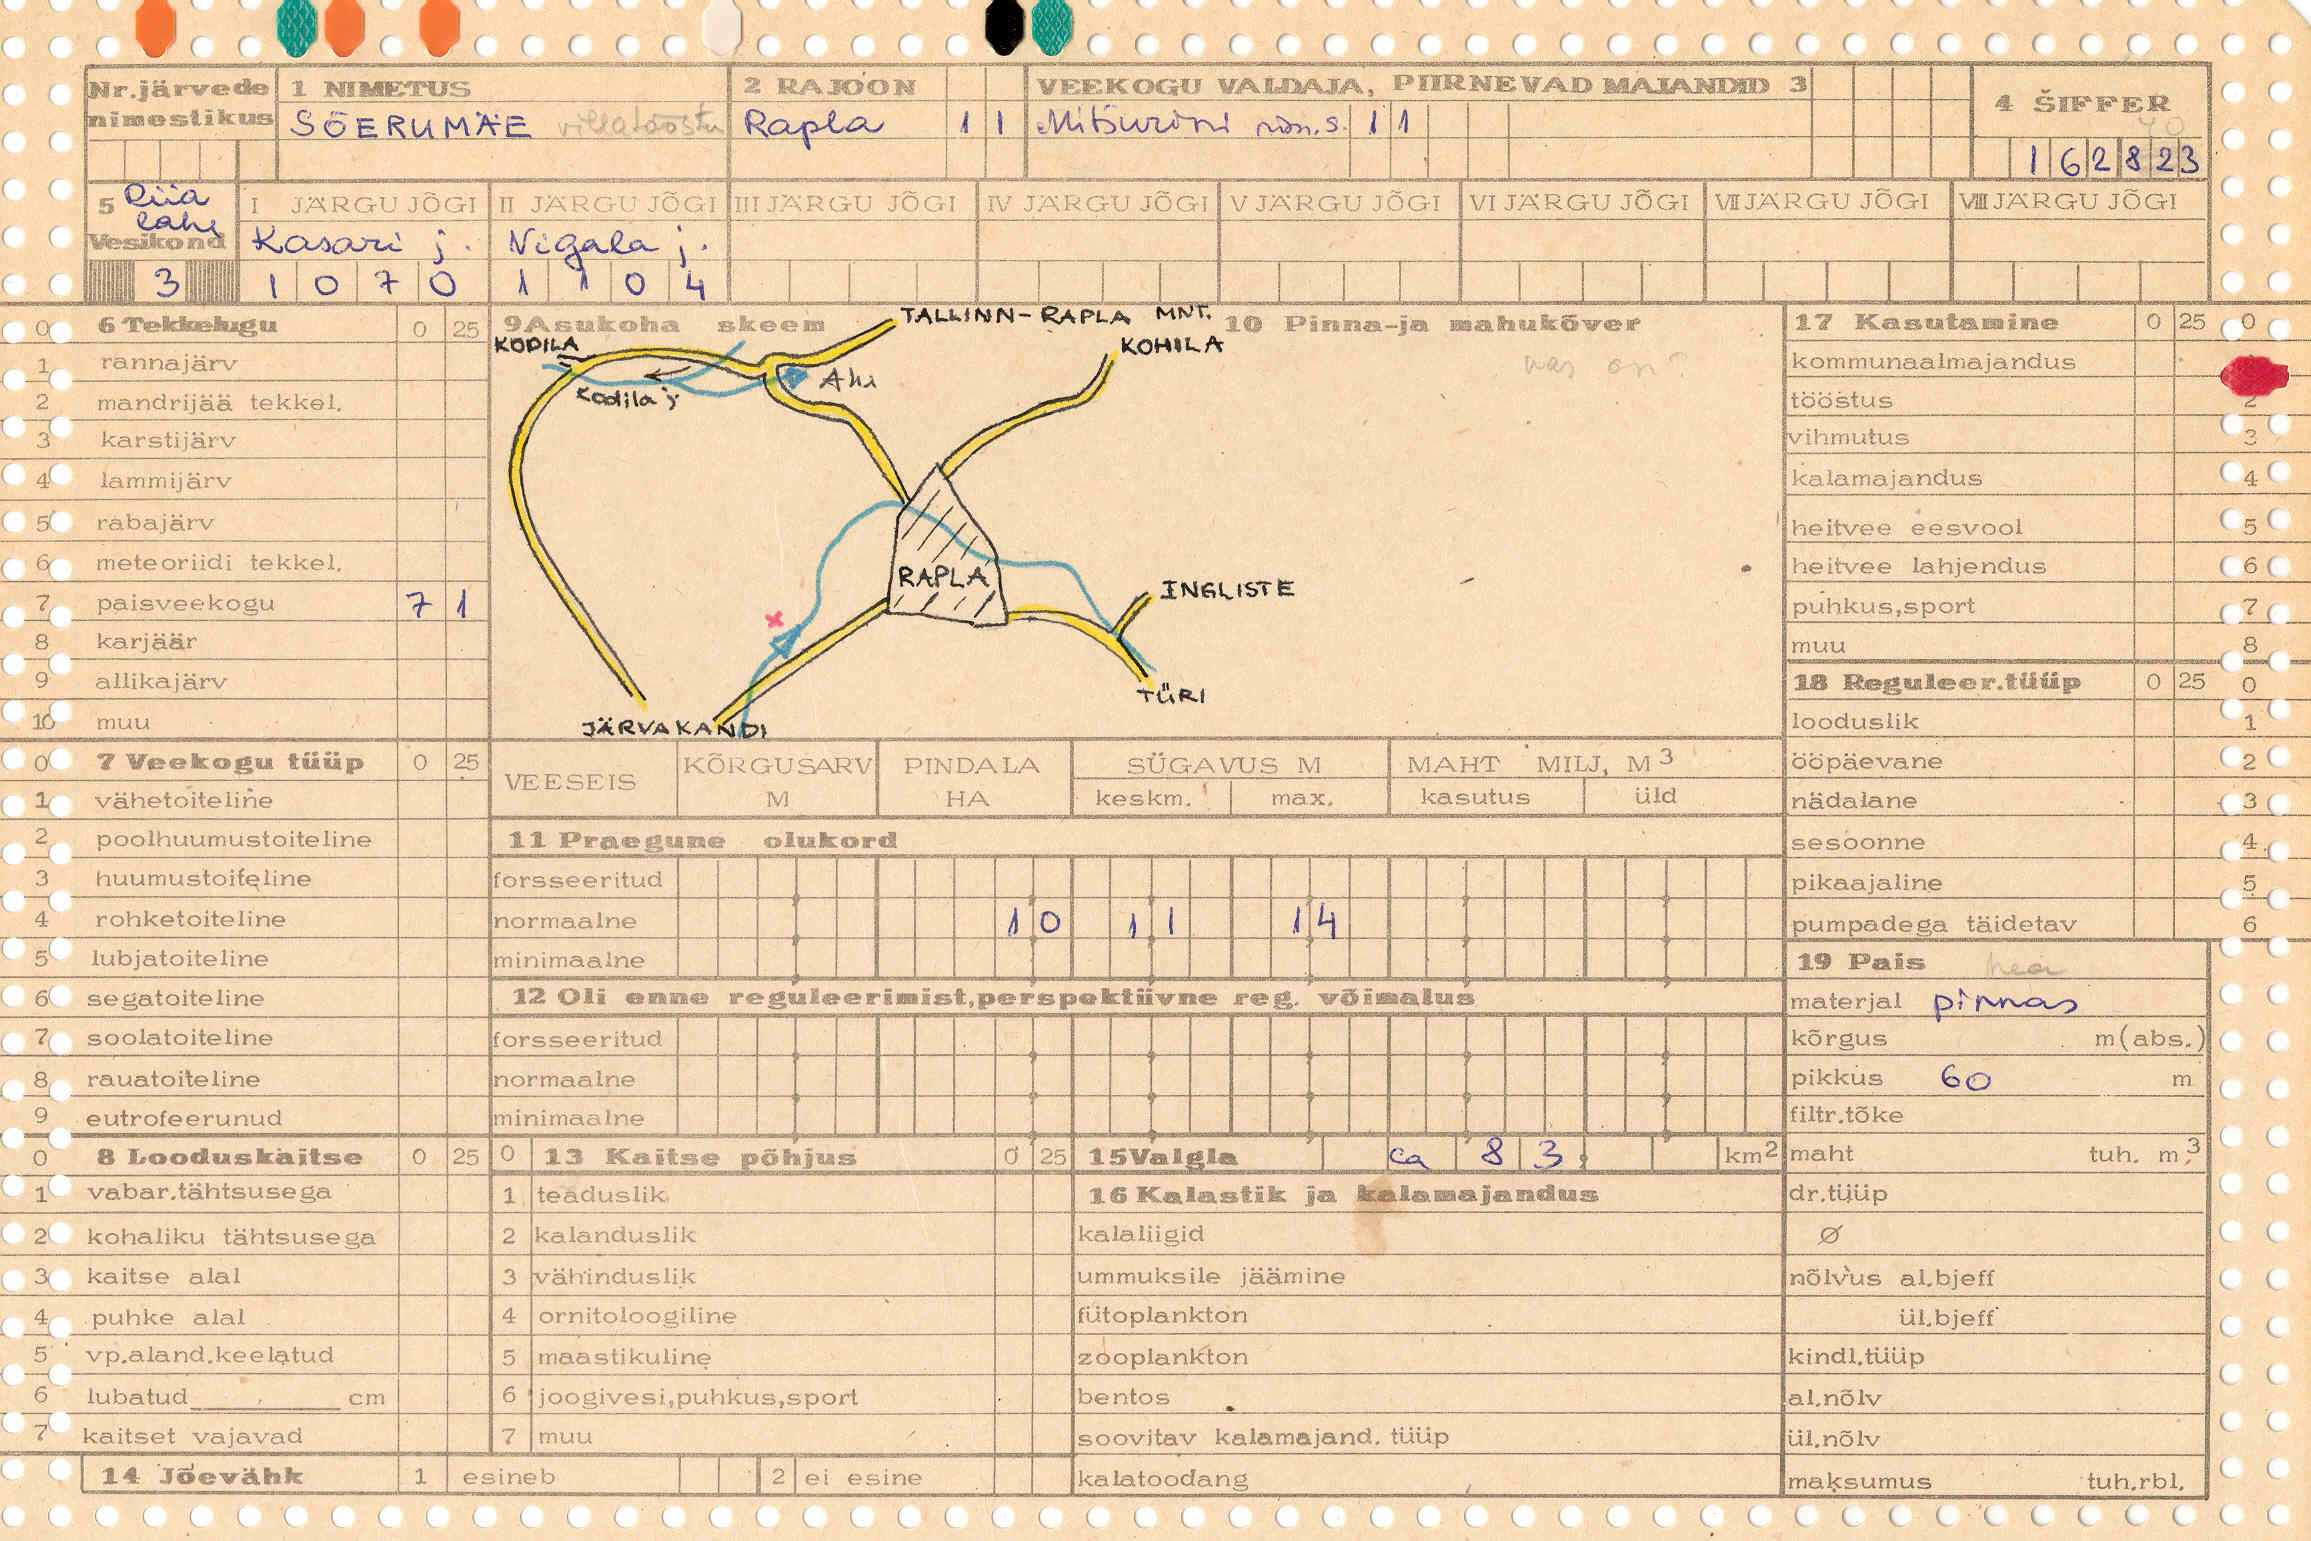 Nr.järvede nimestikus
1 NIMETUS
SÕERUMÄE villatööstu
2 RAJOON
Rapla 1 1
VEEKOGU VALDAJA, PIIRNEVAD MAJANDID 3
Mitšurini nim.s. 1 1
4 ŠIFFER
40
1 6 2 8 2 3
5 Riia lahe
Vesikond
3
I JÄRGU JÕGI
Kasari j.
1 0 7 0
II JÄRGU JÕGI
Vigala j.
1 1 0 4
III JÄRGU JÕGI
IV JÄRGU JÕGI
V JÄRGU JÕGI
VI JÄRGU JÕGI
VII JÄRGU JÕGI
VIII JÄRGU JÕGI
0 6 Tekkelugu 0 25
1 rannajärv
2 mandrijää tekkel.
3 karstijärv
4 lammijärv
5 rabajärv
6 meteoriidi tekkel.
7 paisveekogu 7 1
8 karjäär
9 allikajärv
10 muu
9 Asukoha skeem
TALLINN-RAPLA MNT.
KODILA
KOHILA
Kodila j
RAPLA
INGLISTE
TÜRI
JÄRVAKANDI
10 Pinna-ja mahukõver
kas on?
17 Kasutamine 0 25 0
kommunaalmajandus
tööstus 2
vihmutus 3
kalamajandus 4
heitvee eesvool 5
heitvee lahjendus 6
puhkus,sport 7
muu 8
18 Reguleer.tüüp 0 25 0
looduslik 1
ööpäevane 2
nädalane 3
sesoonne 4
pikaajaline 5
pumpadega täidetav 6
0 7 Veekogu tüüp 0 25
1 vähetoiteline
2 poolhuumustoiteline
3 huumustoiteline
4 rohketoiteline
5 lubjatoiteline
6 segatoiteline
7 soolatoiteline
8 rauatoiteline
9 eutrofeerunud
VEESEIS
KÕRGUSARV M
PINDALA HA
SÜGAVUS M
keskm. max.
MAHT MILJ, M3
kasutus üld
11 Praegune olukord
forsseeritud
normaalne 1 0 1 1 1 4
minimaalne
12 Oli enne reguleerimist,perspektiivne reg. võimalus
forsseeritud
normaalne
minimaalne
19 Pais hea
materjal pinnas
kõrgus m(abs.)
pikkus 60 m
filtr.tõke
maht tuh. m3
dr.tüüp
Ø
nõlvus al.bjeff
ül.bjeff
kindl.tüüp
al.nõlv
ül.nõlv
maksumus tuh.rbl.
0 8 Looduskaitse 0 25
1 vabar.tähtsusega
2 kohaliku tähtsusega
3 kaitse alal
4 puhke alal
5 vp.aland.keelatud
6 lubatud cm
7 kaitset vajavad
0 13 Kaitse põhjus 0 25
1 teaduslik
2 kalanduslik
3 vähinduslik
4 ornitoloogiline
5 maastikuline
6 joogivesi,puhkus,sport
7 muu
15 Valgla ca 8 3 km2
16 Kalastik ja kalamajandus
kalaliigid
ummuksile jäämine
fütoplankton
zooplankton
bentos
soovitav kalamajand. tüüp
kalatoodang
14 Jõevähk 1 esineb 2 ei esine